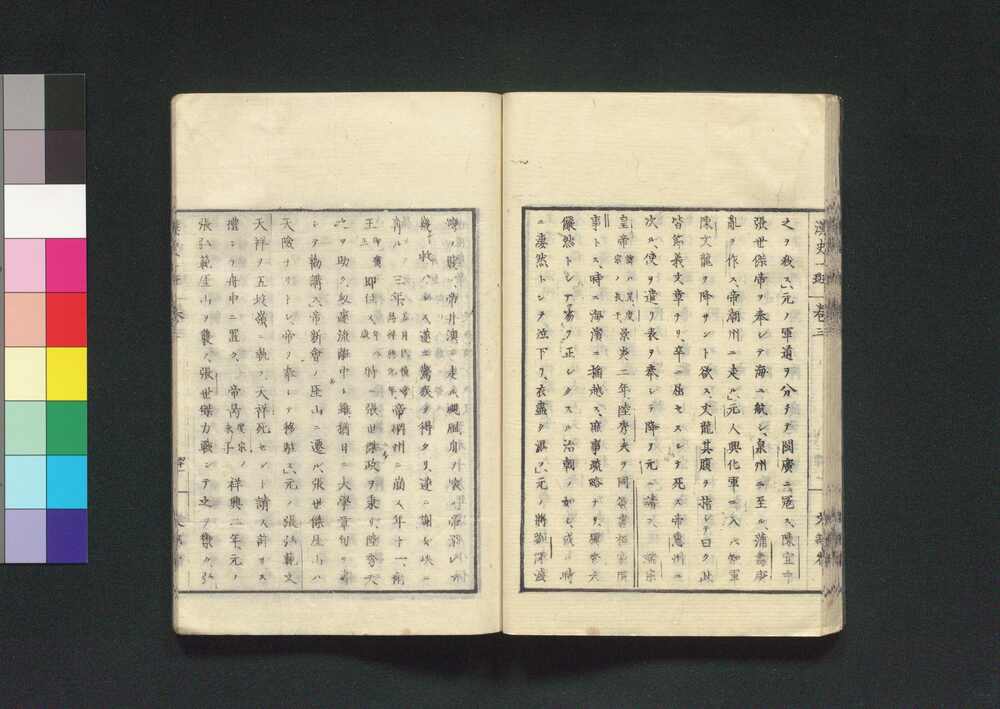 漢史一班 卷三
之ヲ殺ス」元ノ軍道ヲ分チテ閩廣ニ冦ス、陳宜中
張世傑帝ヲ奉シテ海ニ航シ、泉州ニ至ル、蒲壽庚
亂ヲ作ス、帝潮州ニ走ル」元人興化軍ニ入ル知軍
陳文龍ヲ降サント欲ス、文龍其腹ヲ指シテ曰ク此
皆節義文章ナリ、卒ニ屈セスシテ死ス帝惠州ニ
次ル、使ヲ遣リ表ヲ奉シテ降ヲ元ニ請フ 端宗
皇帝 度宗ノ長子 景炎二年陸秀夫ヲ同簽書樞密院
事トス、時ニ海濱ニ播越ス、庶事疏略ナリ、獨秀夫
儼然トシテ笏ヲ正シクスル治朝ノ如シ、或ハ時
ニ凄然トシテ泣下リ、衣盡ク濕フ」元ノ將劉深淺
灣ヲ襲フ、帝井澳ニ走ル颶風舟ヲ壞リ帝
ニ驚疾ヲ得タリ、
三年 帝碙州ニ崩ス年十一、衛
王 即位ス 年八歳 時ニ張世傑政ヲ秉リ、陸秀夫
之ヲ助ク、 流離中ト雖猶日ニ大學章句ヲ書
シテ勸講ス、帝新會ノ厓山ニ遷ル、張世傑厓山ハ
天險ナリトシ帝ヲ奉シテ移駐ス」元ノ張弘範文
天祥ヲ五坡嶺ニ執フ、天祥死センヿ請フ許サス
舟中ニ置ク、 帝昺 度宗ノ末子 祥興二年、元ノ
張弘範厓山ヲ襲フ、張世傑力戰シテ之ヲ禦ク、弘